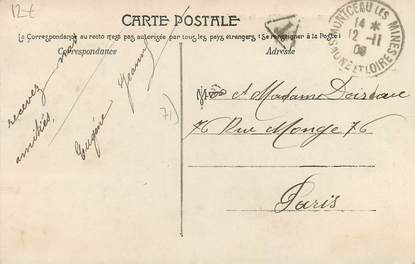 12 €
CARTE POSTALE
La Correspondance au recto n'est pas autorisée par tous les pays étrangers (Se renseigner à la Poste)
Correspondance
Adresse
recevez nos
amitiés.
Eugène Jeanne
71
T
MONTCEAU LES MINES
14 *
12 -11
08
SAONE ET LOIRE
et Madame
76 Rue Monge 76
Paris